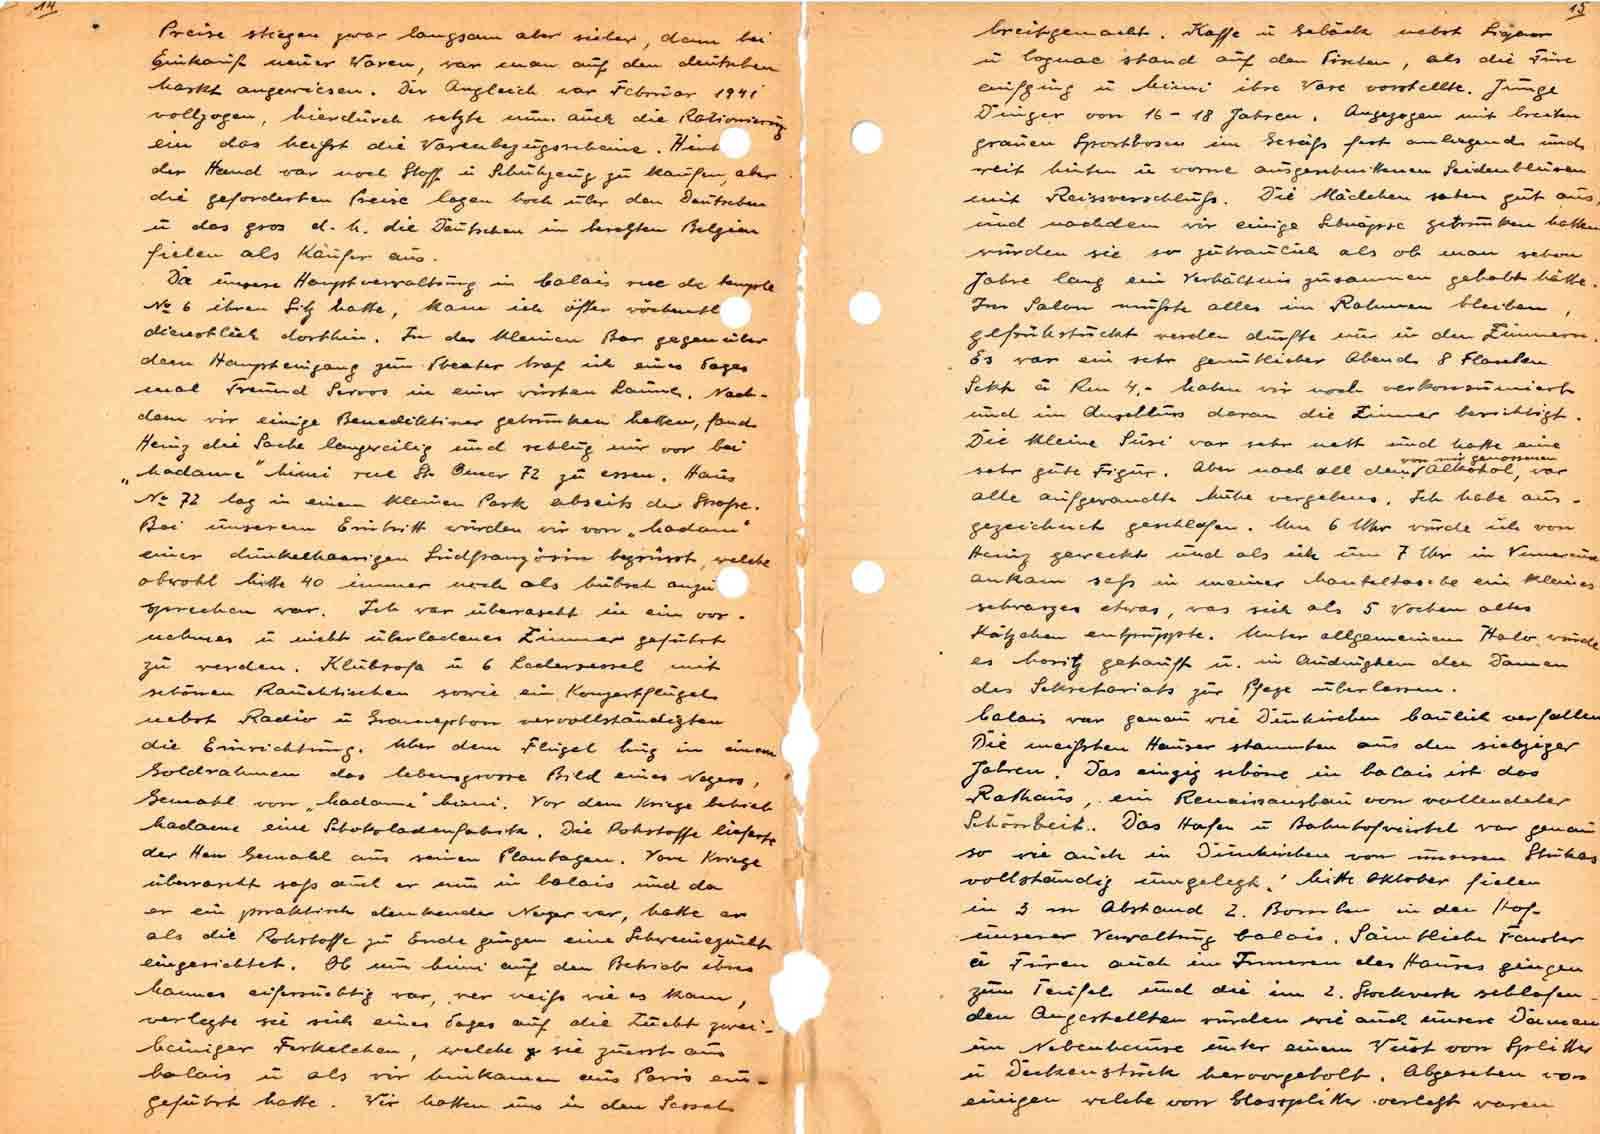 14
Preise stiegen zwar langsam aber sicher, denn bei
Einkauf neuer Waren, war man auf den deutschen
Markt angewiesen. Der Angleich war Februar 1941
vollzogen, hierdurch setzte nun auch die Rationierung
ein das heißt die Warenbezugsscheine. Hint
der Hand war noch Stoff u Schuhzeug zu kaufen, aber
die geforderten Preise lagen hoch über den Deutschen
u das gros d. h. die Deutschen im besetzten Belgien
fielen als Käufer aus.
Da unsere Hauptverwaltung in Calais rue de temple
No 6 ihren Sitz hatte, kam ich öfter wöchentl
dienstlich dorthin. In der kleinen Bar gegenüber
dem Haupteingang zum Theater traf ich eines Tages
mal Freund Servos in einer wirsten Laune. Nach-
dem wir einige Benediktiner getrunken hatten, fand
Heinz die Sache langweilig und schlug mir vor bei
„Madame" Mimi rue St. Omer 72 zu essen. Haus
No 72 lag in einem kleinen Park abseits der Straße.
Bei unserem Eintritt wurden wir von „Madame"
einer dunkelhaarigen Südfranzösin begrüsst, welche
obwohl Mitte 40 immer noch als hübsch anzu
sprechen war. Ich war überrascht in ein vor-
nehmes u nicht überladenes Zimmer geführt
zu werden. Klubsofa u 6 Ledersessel mit
schönen Rauchtischen sowie ein Konzertflügel
nebst Radio u Gramophon vervollständigten
die Einrichtung. Über dem Flügel hing in einem
Goldrahmen das lebensgrosse Bild eines Negers,
Gemahl von „Madame" Mimi. Vor dem Kriege betrieb
Madame eine Schokoladenfabrik. Die Rohstoffe lieferte
der Herr Gemahl aus seinen Plantagen. Vom Kriege
überrascht saß auch er nun in Calais und da
er ein praktisch denkender Neger war, hatte er
als die Rohstoffe zu Ende gingen eine Schweinezucht
eingerichtet. Ob nun Mimi auf den Betrieb ihres
Mannes eifersüchtig war, wer weiß wie es kam,
verlegte sie sich eines Tages auf die Zucht zwei-
beiniger Ferkelchen, welche sie zuerst aus
Calais u als wir hinkamen aus Paris ein-
geführt hatte. Wir hatten uns in den Sesseln
15
breitgemacht. Kaffe u Gebäck nebst Liqueur
u Cognac stand auf den Tischen, als die Türe
aufging u Mimi ihre Ware vorstellte. Junge
Dinger von 16-18 Jahren. Angezogen mit breiten
grauen Sporthosen im Gesäß fest anliegend und
weit hinten u vorne ausgeschnittenen Seidenblusen
mit Reissverschluß. Die Mädchen sahen gut aus,
und nachdem wir einige Schnäpse getrunken hatten
wurden sie so zutraulich als ob man schon
Jahre lang ein Verhältnis zusammen gehabt hätte.
Im Salon mußte alles im Rahmen bleiben,
gefrühstückt werden durfte nur in den Zimmern.
Es war ein sehr gemütlicher Abend 8 Flaschen
Sekt à Rm 4,- haben wir noch verkonsumiert
und im Anschluss daran die Zimmer besichtigt.
Die kleine Susi war sehr nett und hatte eine
von mir genossenen
sehr gute Figur. Aber nach all dem Alkohol, war
alle aufgewandte Mühe vergebens. Ich habe aus-
gezeichnet geschlafen. Um 6 Uhr wurde ich von
Heinz geweckt und als ich um 7 Uhr in Vimereux
ankam saß in meiner Manteltasche ein kleines
schwarzes etwas, was sich als 5 Wochen altes
Kätzchen entpuppte. Unter allgemeinem Halo wurde
es getauft u. in den Damen
des Sekretariats zur Pflege überlassen.
Calais war genau wie Dünkirchen baulich verfallen
Die meißten Häuser stammten aus den siebziger
Jahren. Das einzig schöne in Calais ist das
Rathaus, ein Renaissansbau von vollendeter
Schönheit. Das Hafen u Bahnhofviertel war genau
so wie auch in Dünkirchen von unseren Stukas
vollständig umgelegt. Mitte Oktober fielen
in 3 m Abstand 2. Bomben in den Hof-
unserer Verwaltung Calais. Sämtliche Fenster
u Türen auch im Inneren des Hauses gingen
zum Teufel und die im 2. Stockwerk schlafen-
den Angestellten wurden wie auch unsere Damen
im Nebenhause unter einem Wust von Splitter
u Deckenstück hervorgeholt. Abgesehen von
einigen welche von Glassplitter verletzt waren